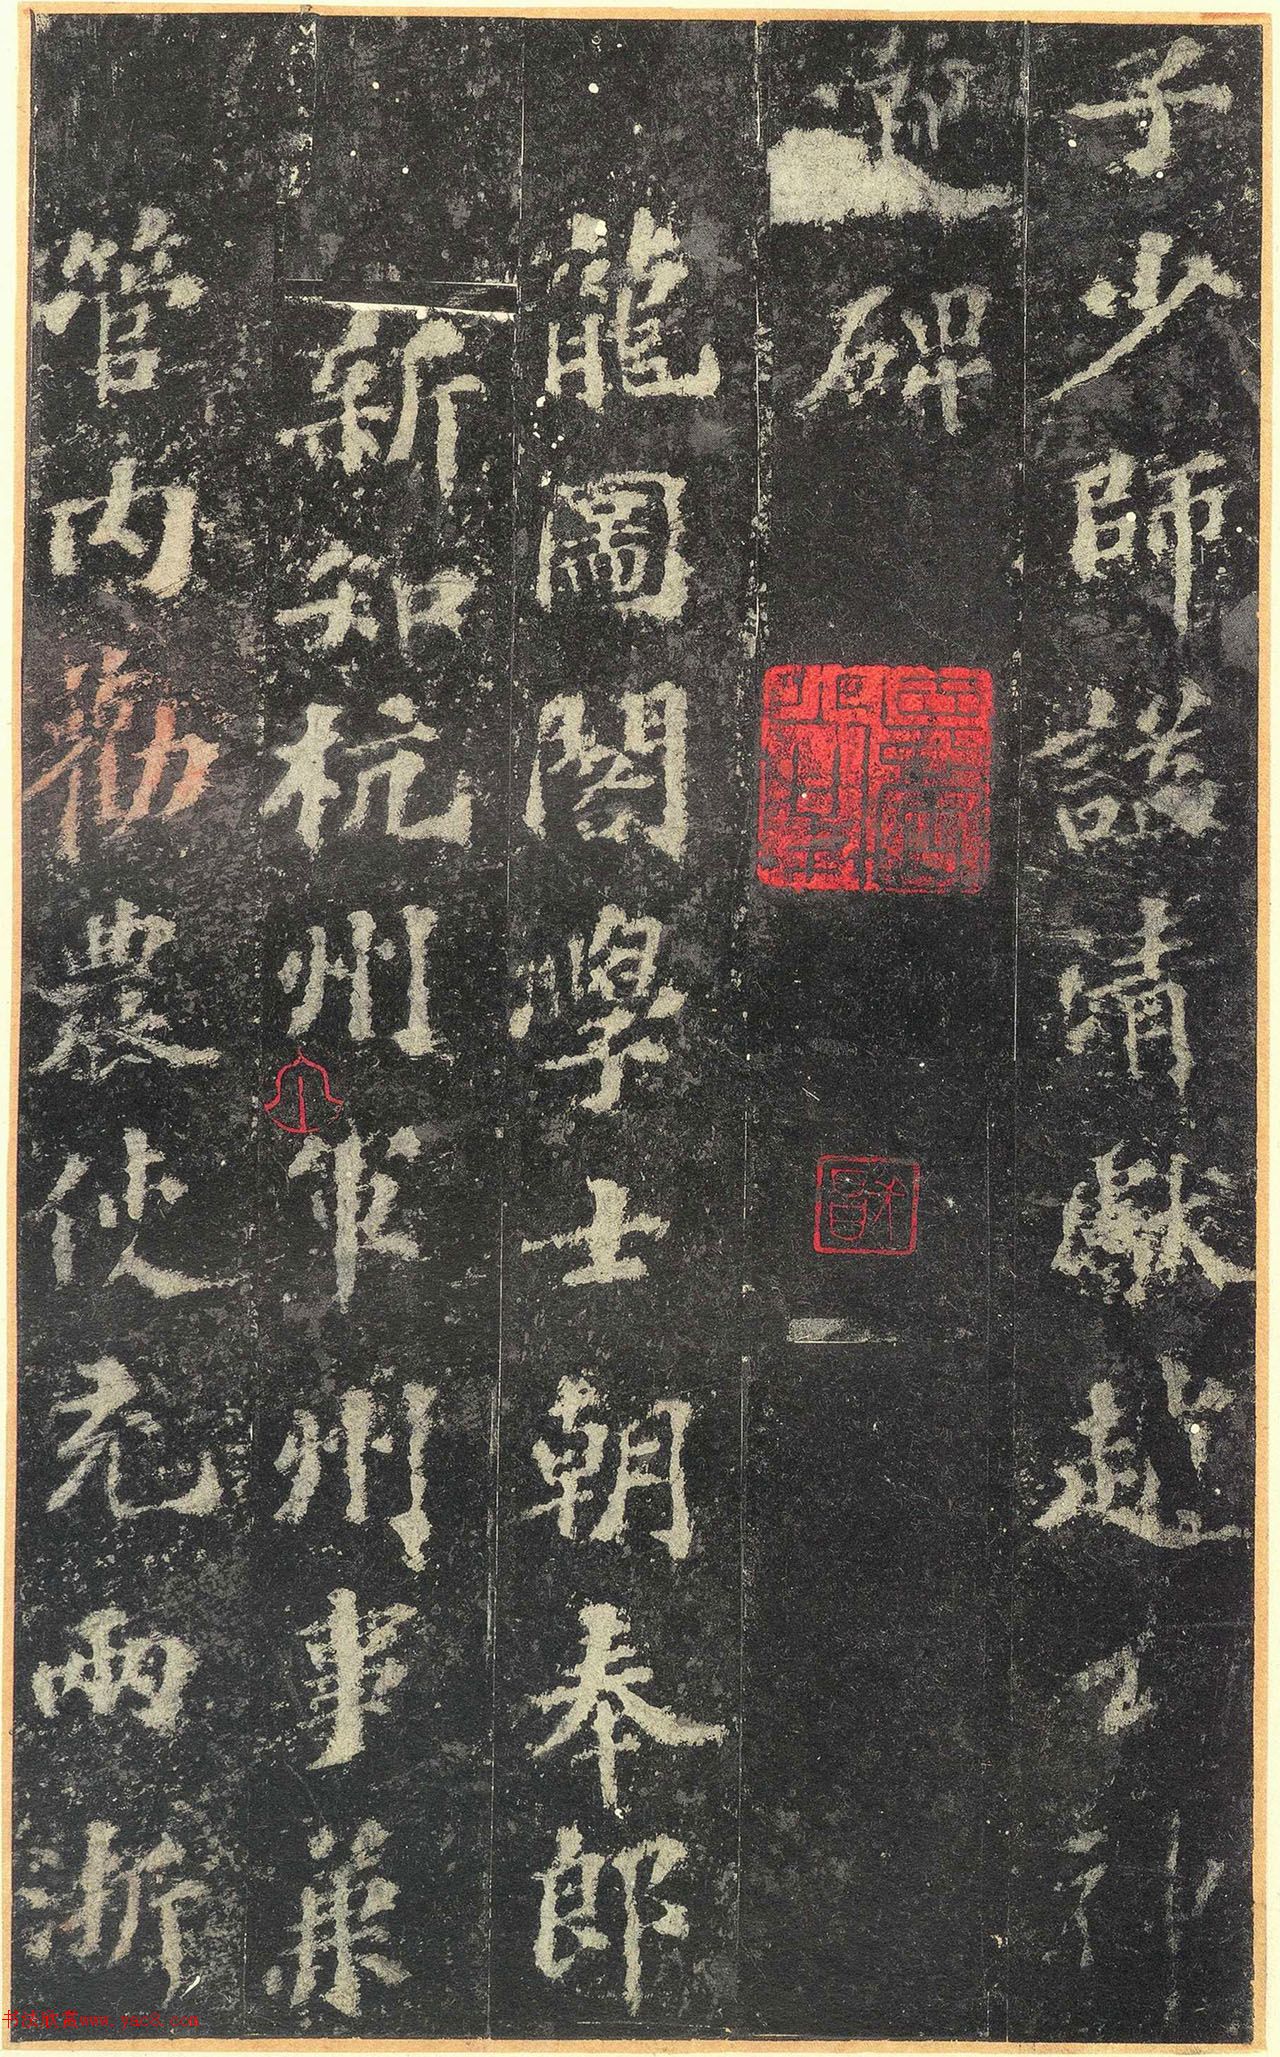 子少師諡清獻趙公神
道碑
龍圖閣學士朝奉郎
新知杭州軍州事兼
管內勸農使充兩浙
书法欣赏www.yac8.com